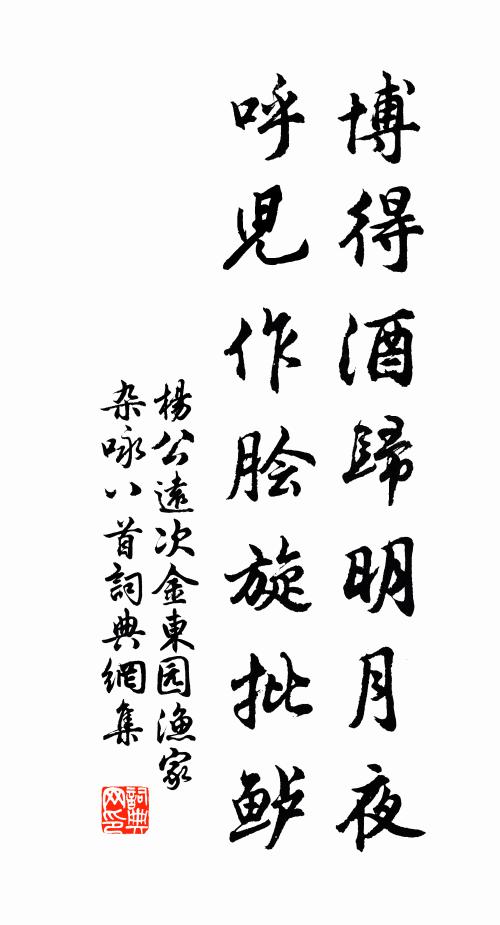 博得酒歸明月夜
呼児作脍旋批鲈
楊公遠次金東园漁家
杂咏八首詞典網集
詞典网印